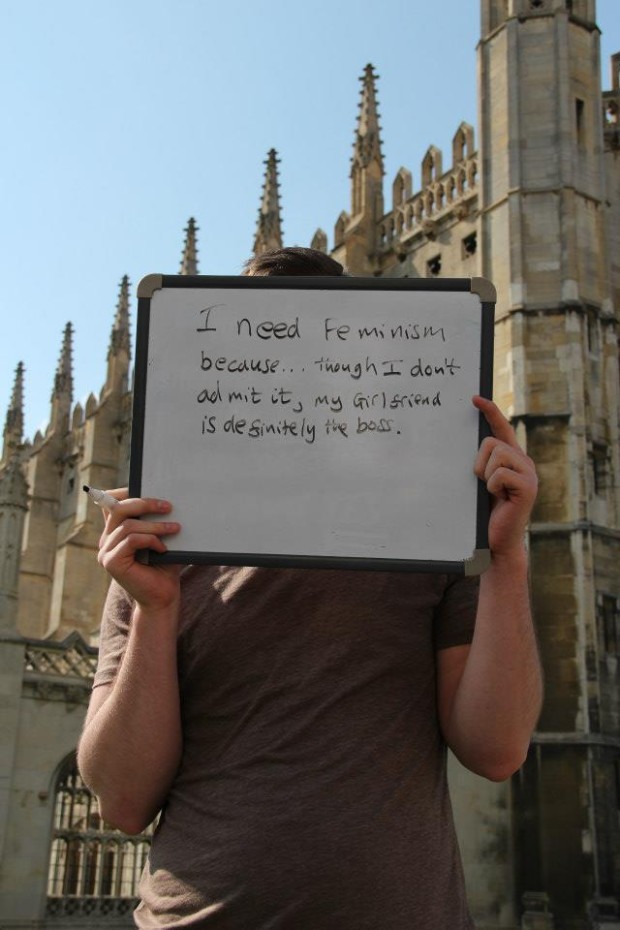 I need Feminism
because... though I don't
admit it, my Girlfriend
is definitely the boss.